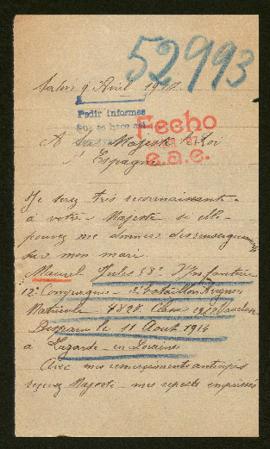 52993
9 Avril
Pedir informes
Fecho
A Sa Majesté le Roi
e.a.e.
d'Espagne
Je serez très reconnaissante
à votre Majesté si elle
pouvez me donner des renseignements
sur mon mari
Maurel Jules 58e d'Infanterie
12e Compagnie - 3e bataillon Avignon
Matricule 4820 Classe
Disparu le 11 Aout 1914
à Lagarde en Lorraine
Avec mes remerciements anticipés
recevez Majesté mes respects empressés